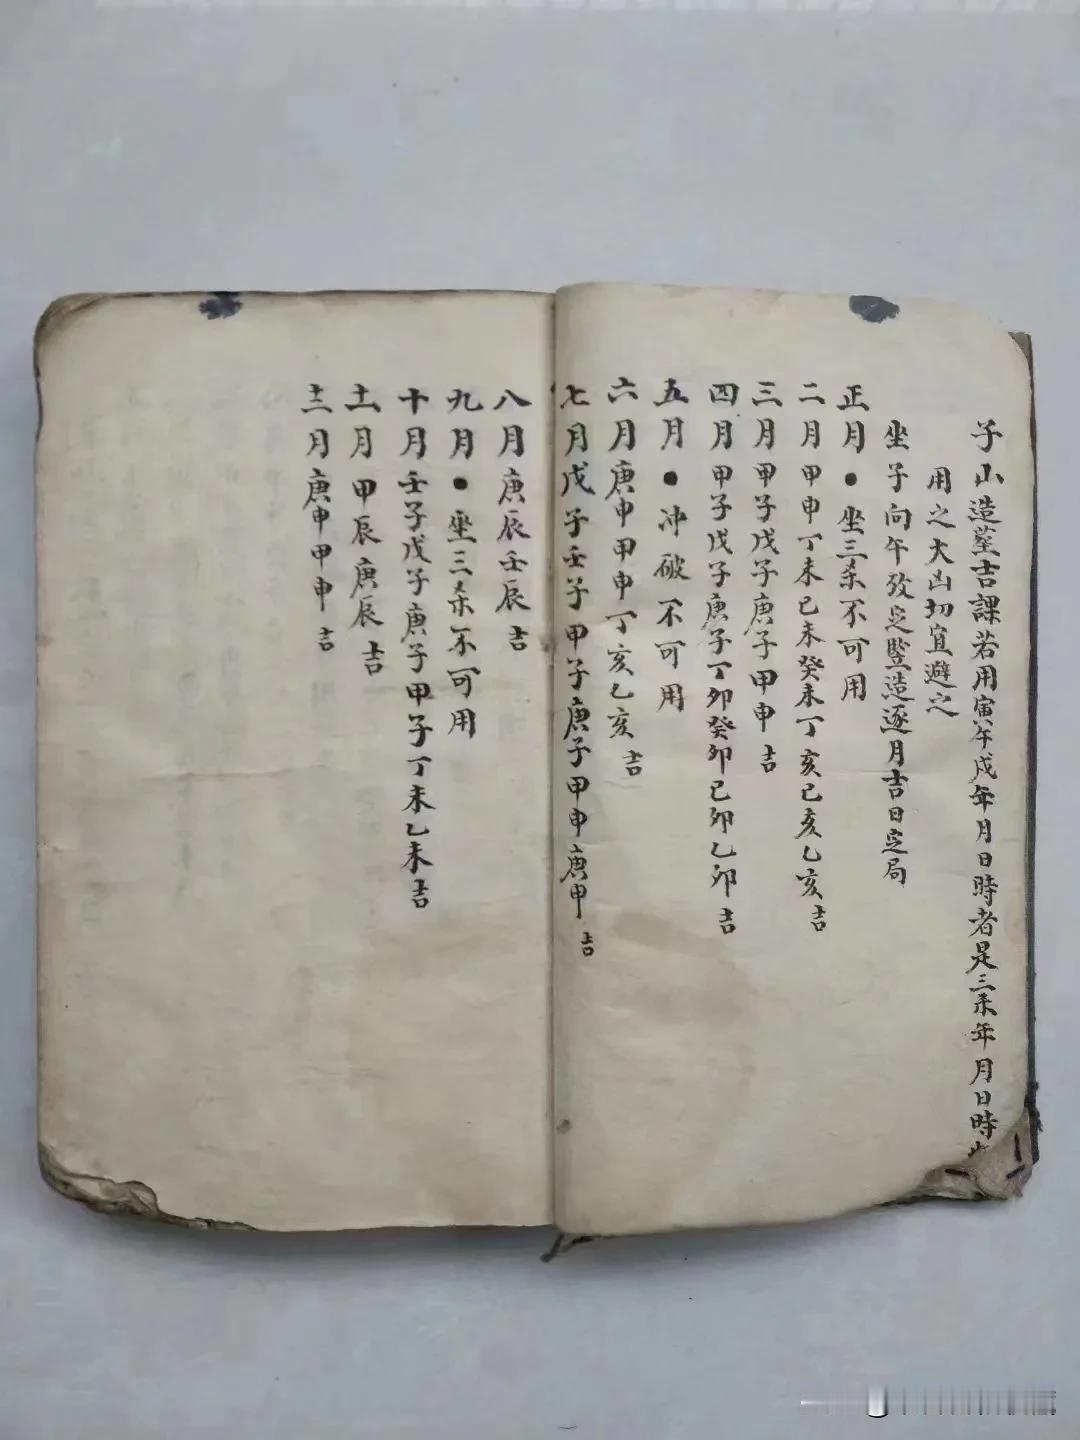 子山造茔吉課若用寅午戌年月日時者是三杀年月日時
用之大凶切宜避之
坐子向午攷定竪造逐月吉日定局
正月●坐三杀不可用
二月甲申丁未己未癸未丁亥己亥乙亥吉
三月甲子戊子庚子甲申吉
四月甲子戊子庚子丁卯癸卯己卯乙卯吉
五月●冲破不可用
六月庚申甲申丁亥乙亥吉
七月戊子壬子甲子庚子甲申庚申吉
八月庚辰壬辰吉
九月●坐三杀不可用
十月壬子戊子庚子甲子丁未乙未吉
十一月甲辰庚辰吉
十二月庚申甲申吉